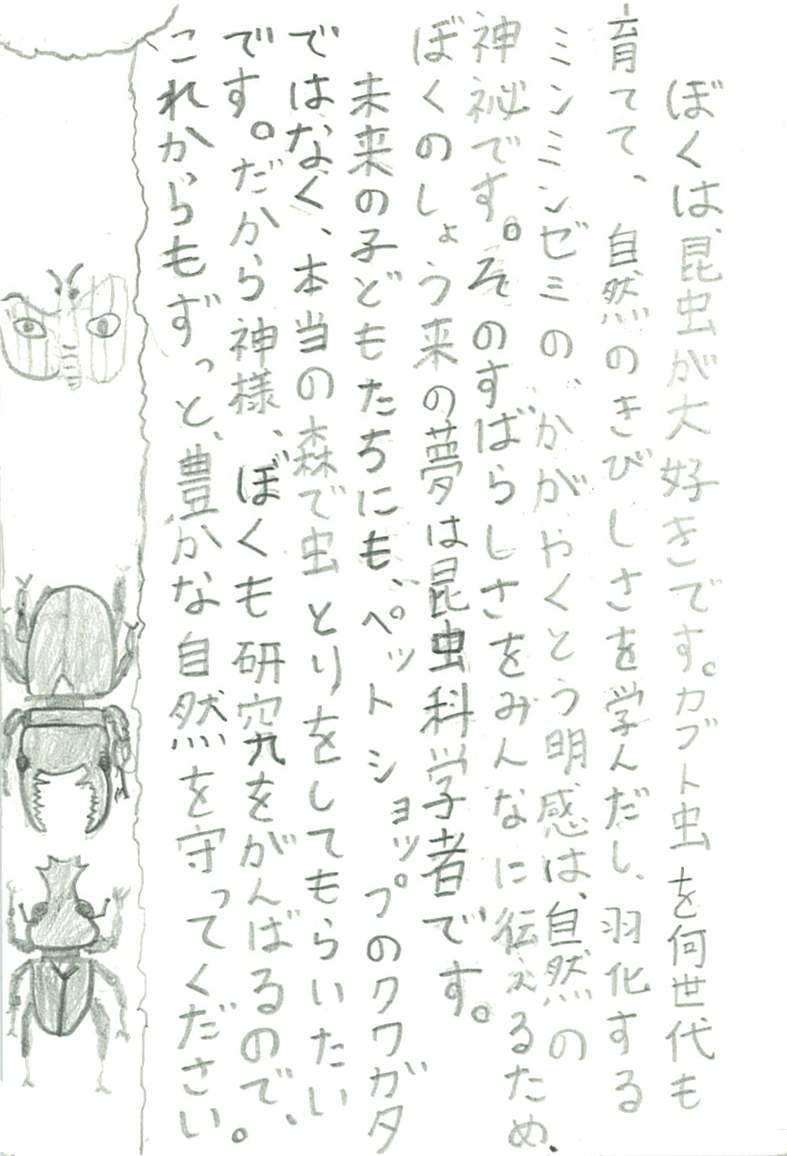 ぼくは、昆虫が大好きです。カブト虫を何世代も
育てて、自然のきびしさを学んだし、羽化する
ミンミンゼミの、かがやくとう明感は、自然の
神秘です。そのすばらしさをみんなに伝えるため、
ぼくのしょう来の夢は昆虫科学者です。
未来の子どもたちにも、ペットショップのクワガタ
ではなく、本当の森で虫とりをしてもらいたい
です。だから神様、ぼくも研究をがんばるので、
これからもずっと、豊かな自然を守ってください。